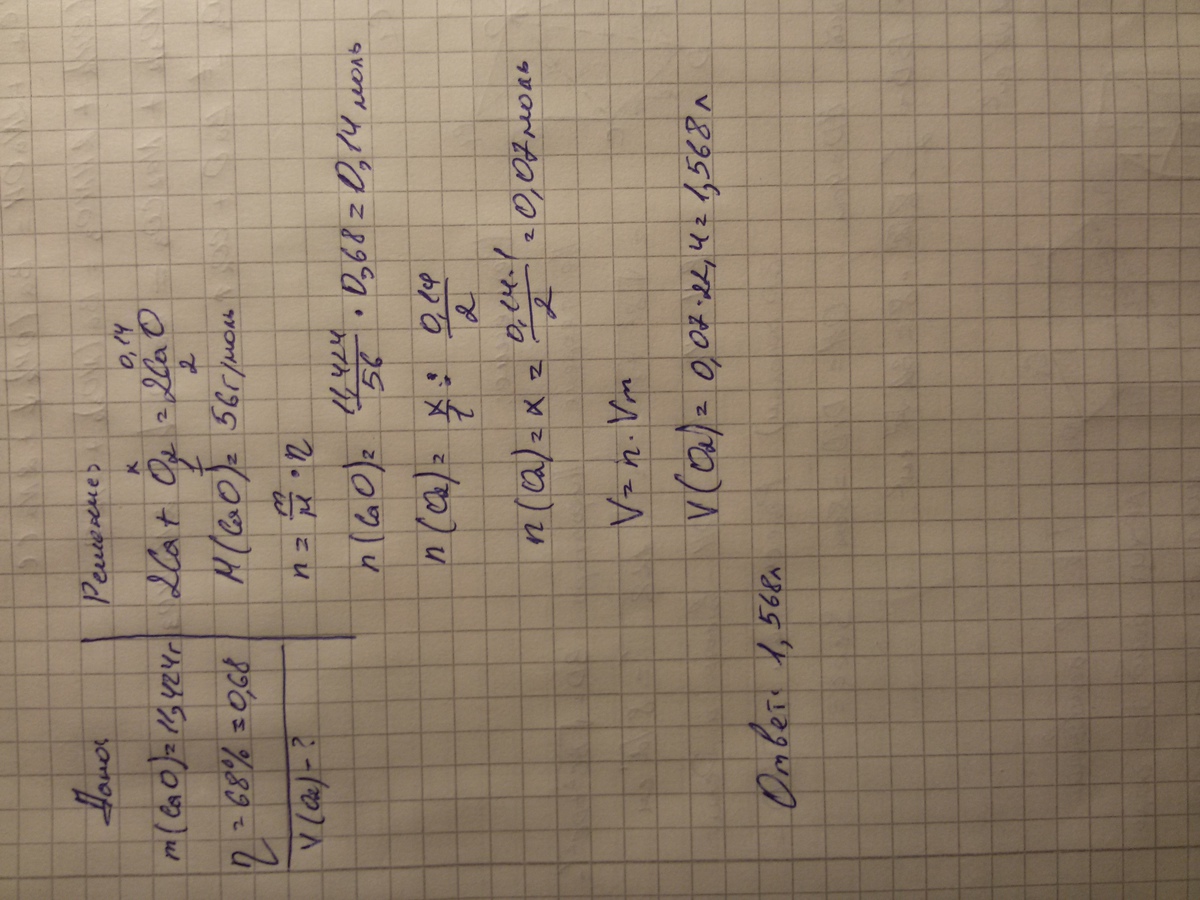 Дано:
m(CaO)=11,424г
η=68%=0,68
V(O₂)-?
Решение:
x 0,14
2Ca + O₂ = 2CaO
1 2
M(CaO)= 56г/моль
n = m/M · η
n(CaO)= 11,424/56 · 0,68 = 0,14 моль
n(O₂)= x/1 : 0,14/2
n(O₂)= x = 0,14·1/2 = 0,07 моль
V=n·Vm
V(O₂)= 0,07·22,4=1,568 л
Ответ: 1,568л